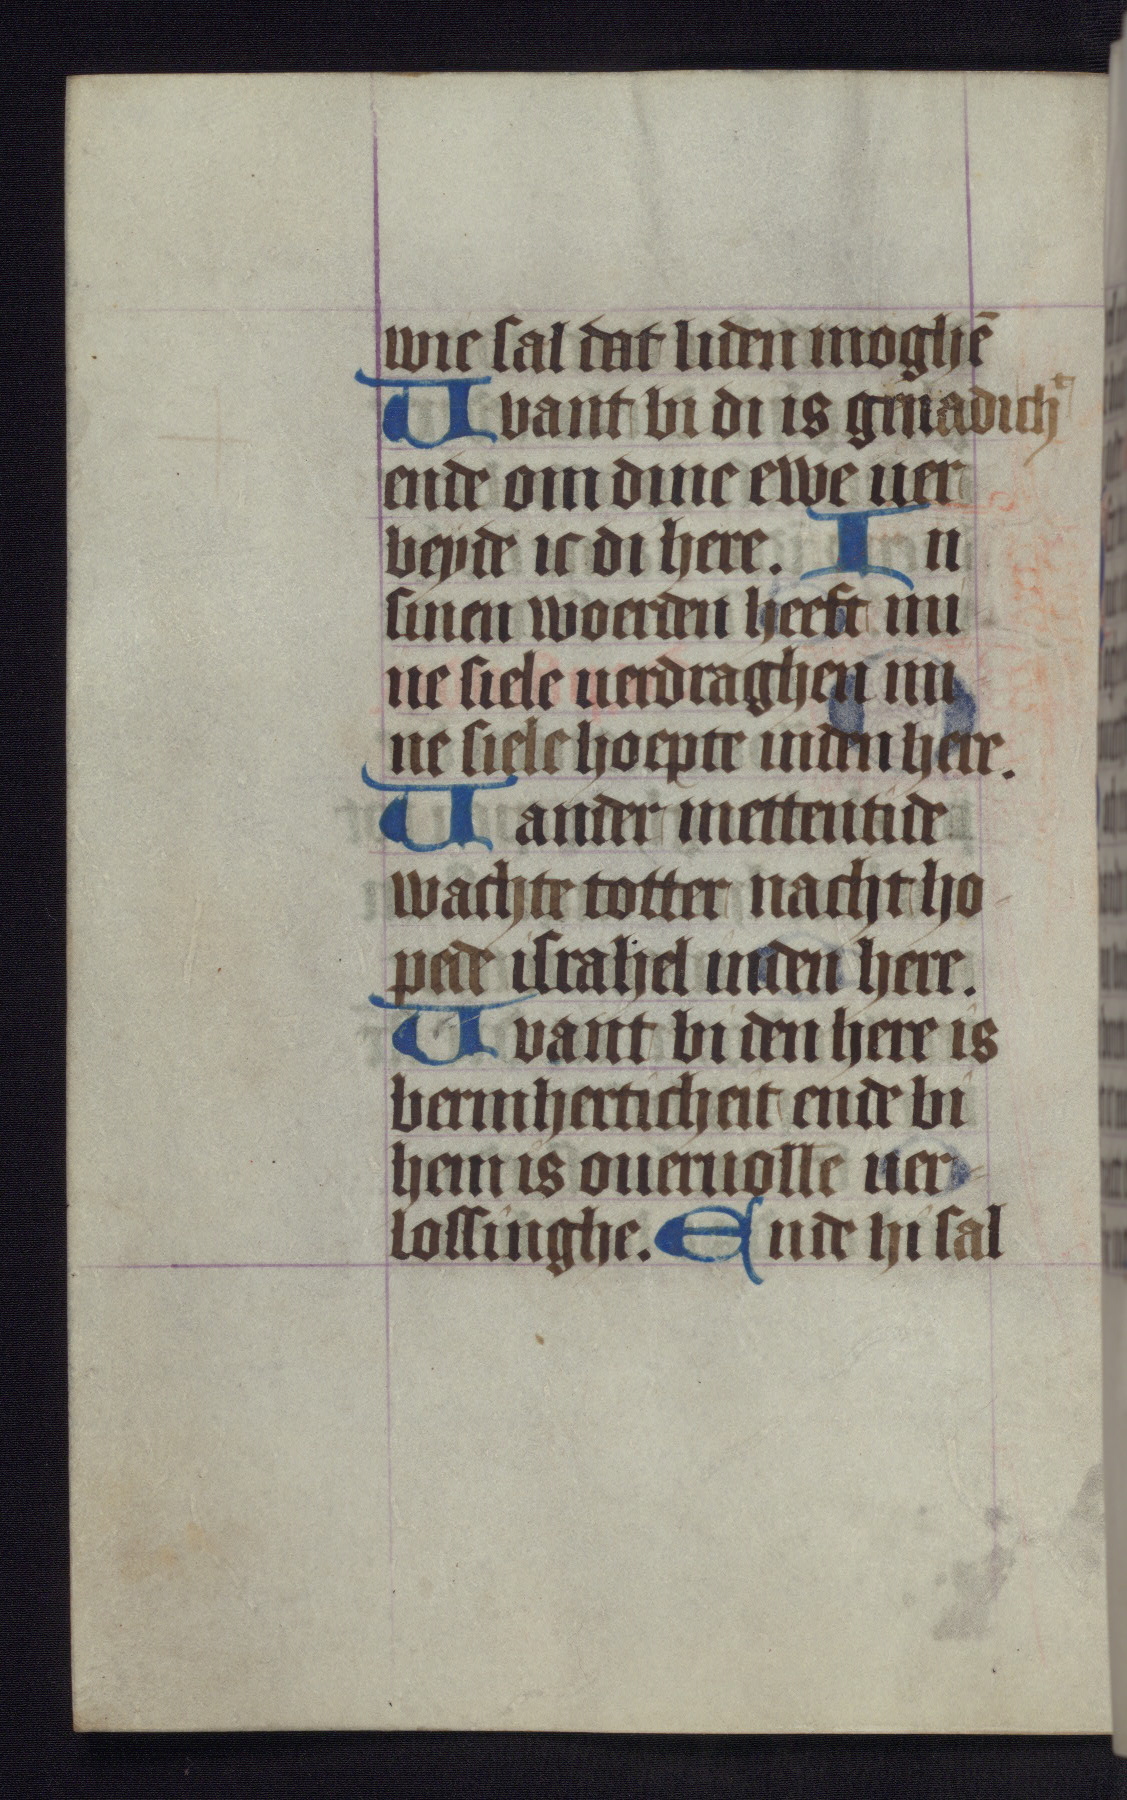 wie sal dat liden moghē
Uvant bi di is genadich^t
ende om dine ewe uer
beyde ic di here. In
sinen woerden heeft mi
ne siele uerdraghen mi
ne siele hoepte inden here.
Uander mettentide
wachte totter nacht ho
pede israhel inden here.
Uvant bi den here is
bermherticheit ende bi
hem is oueruolle uer
lossinghe. Ende hi sal